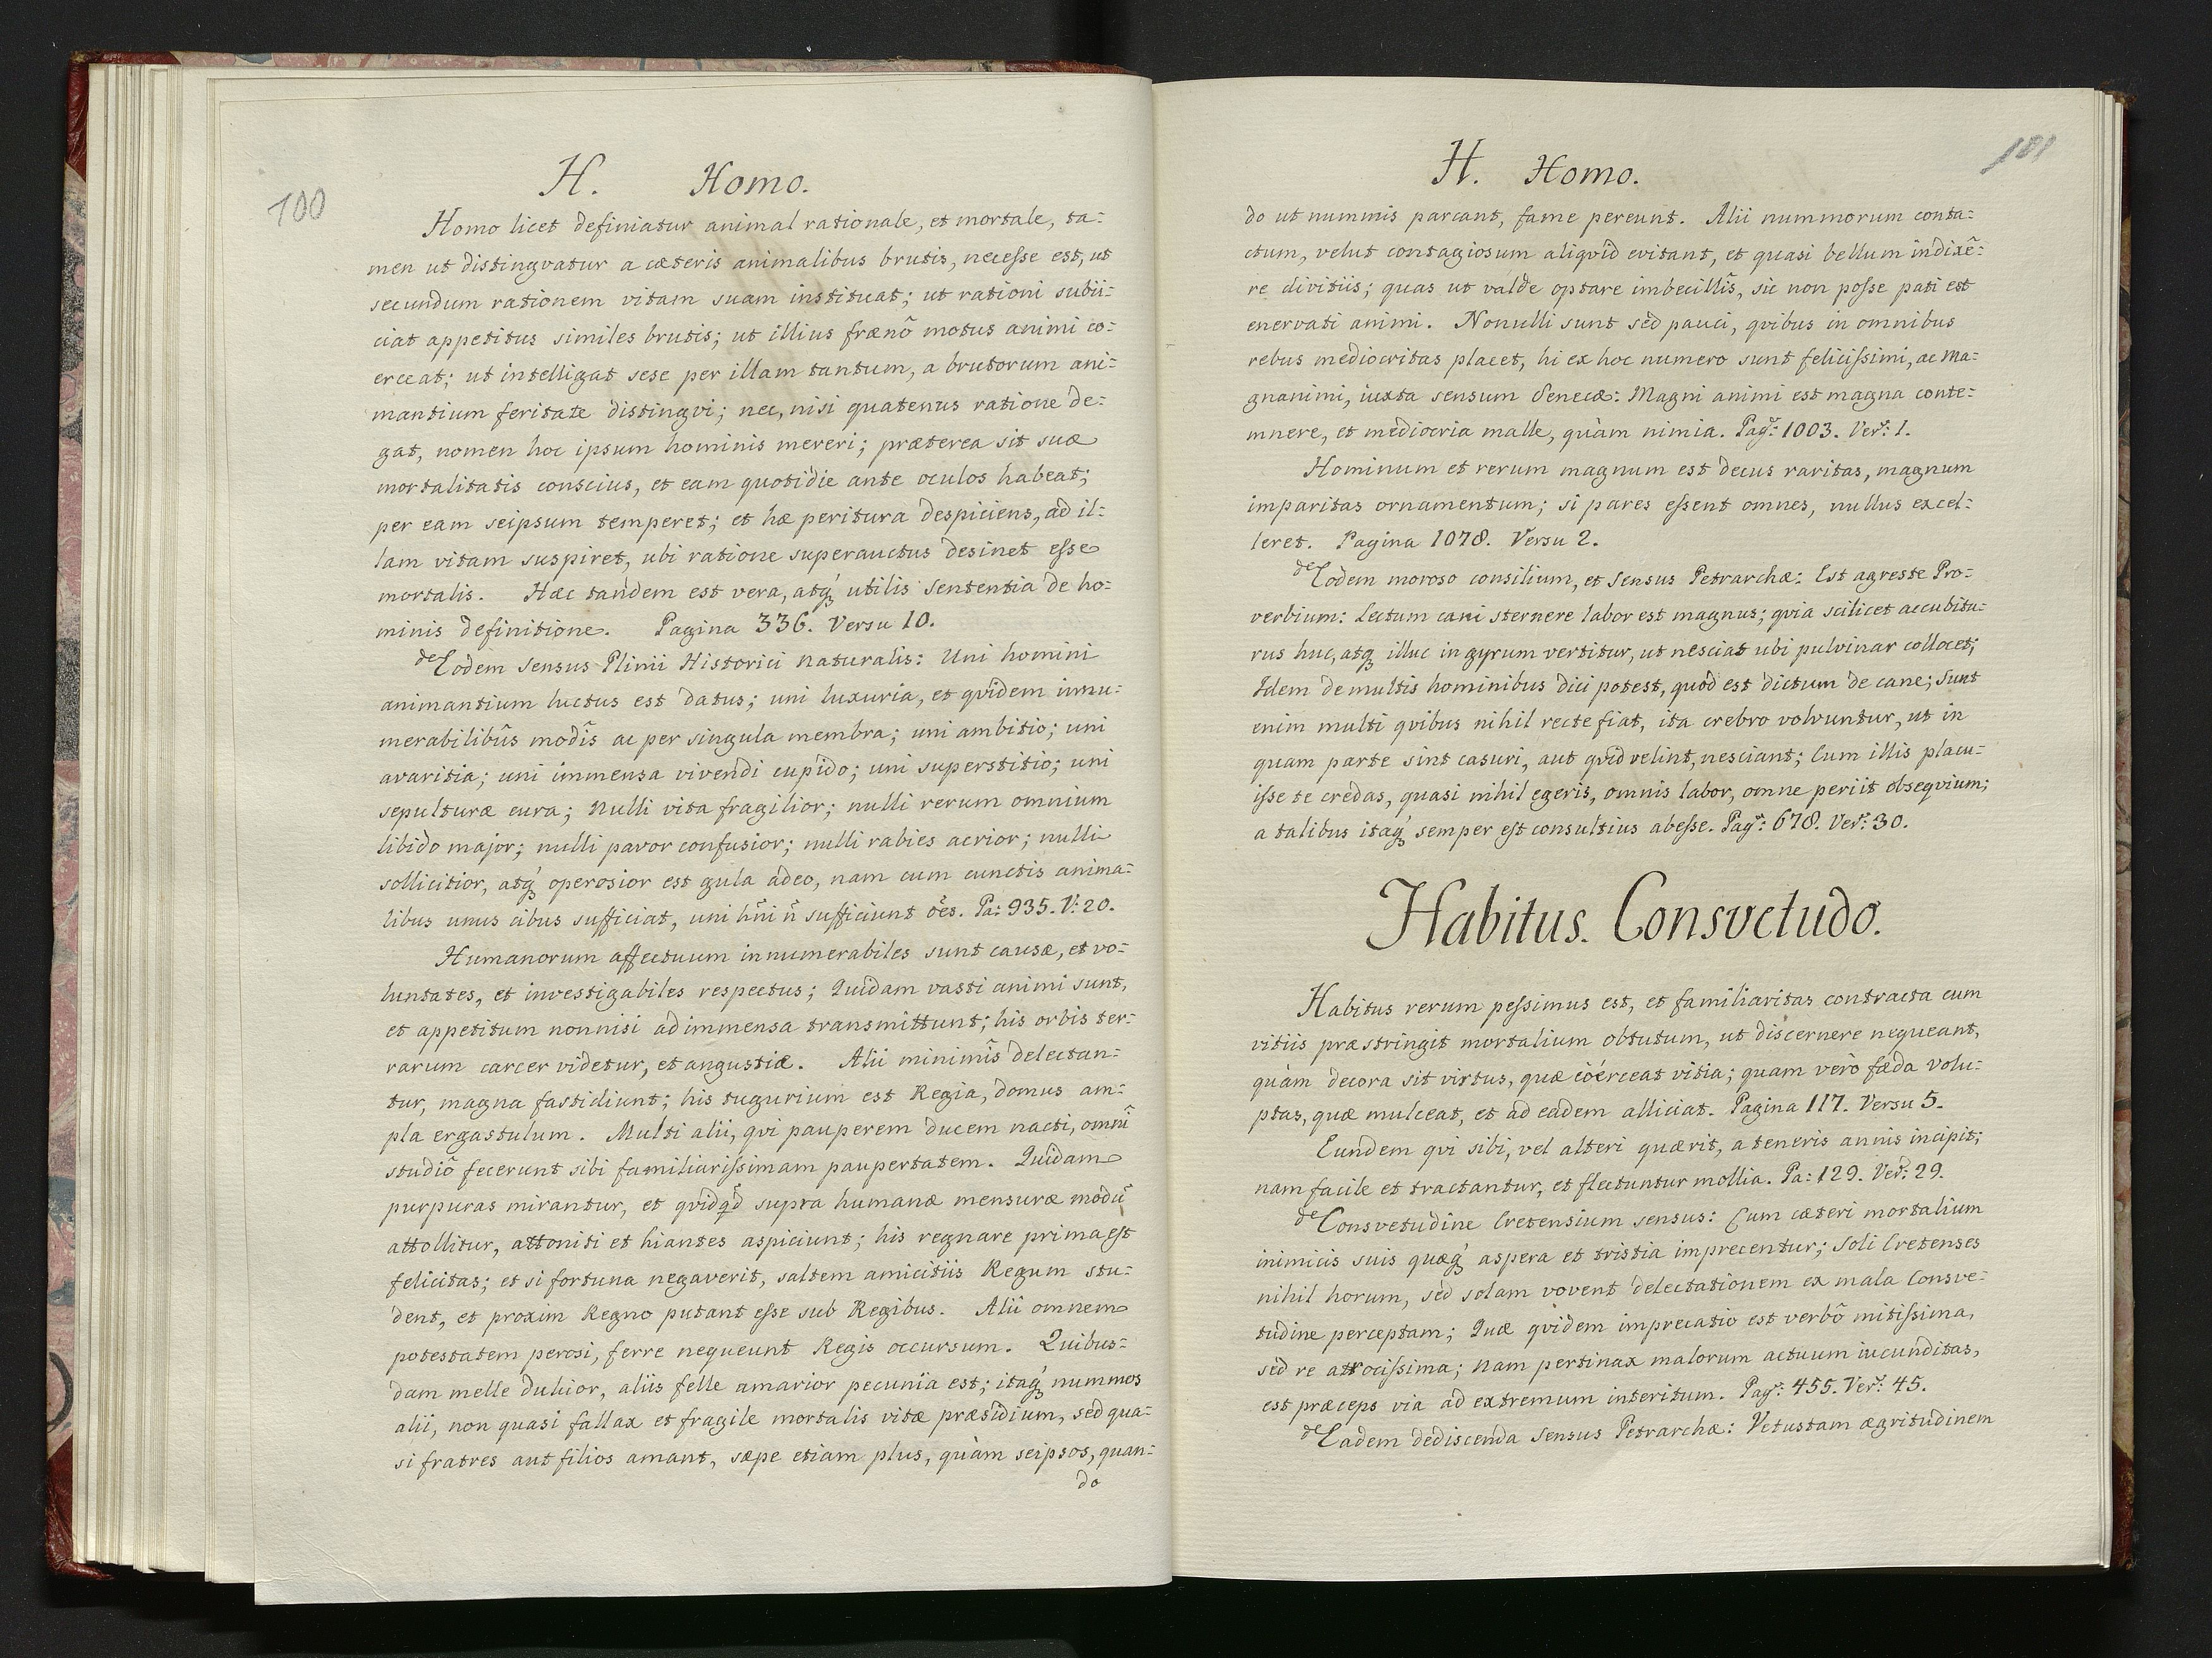 100
H. Homo.
Homo licet definiatur animal rationale, et mortale, ta:
men ut distingvatur a cæteris animalibus brutis, necesse est, ut
secundum rationem vitam suam instituat; ut rationi subii:
ciat appetitus similes brutis; ut illius frænô motus animi co:
erceat; ut intelligat sese per illam tantum, a brutorum ani:
mantium feritate distingvi; nec, nisi quatenus ratione de:
gat, nomen hoc ipsum hominis mereri; præterea sit suæ
mortalitatis conscius, et eam quotidie ante oculos habeat;
per eam seipsum temperet; et hæ peritura despiciens, ad il:
lam vitam suspiret, ubi ratione superauctus desinet esse
mortalis. Hæc tandem est vera, atq́ utilis sententia de ho:
minis definitione. Pagina 336. Versu 10.
de Eodem sensus Plinii Historici naturalis: Uni homini
animantium luctus est datus; uni luxuria, et qvidem innu:
merabilibûs modîs ac per singula membra; uni ambitio; uni
avaritia; uni immensa vivendi cupido; uni superstitio; uni
sepulturæ cura; Nulli vita fragilior; nulli rerum omnium
libido major; nulli pavor confusior; nulli rabies acrior; nulli
sollicitior, atq́ operosior est gula adeo, nam cum cunctis anima:
libus unus cibus sufficiat, uni hn̄i n̄ sufficiunt ōes. Pa: 935. V: 20.
Humanorum affectuum innumerabiles sunt causæ, et vo:
luntates, et investigabiles respectus; Quidam vasti animi sunt,
et appetitum nonnisi ad immensa transmittunt; his orbis ter:
rarum carcer videtur, et angustiæ. Alii minimîs delectan:
tur, magna fastidiunt; his tugurium est Regia, domus am:
pla ergastulum. Multi alii, qvi pauperem ducem nacti, omnī
studiô fecerunt sibi familiarissimam paupertatem. Quidam
purpuras mirantur, et qvidqd̄ supra humanæ mensuræ modū
attollitur, attoniti et hiantes aspiciunt; his regnare prima est
felicitas; et si fortuna negaverit, saltem amicitiis Regum stu:
dent, et proxim Regno putant esse sub Regibus. Alii omnem
potestatem perosi, ferre nequeunt Regis occursum. Quibus:
dam melle dulcior, aliis felle amarior pecunia est; itaq́ nummos
alii, non quasi fallax et fragile mortalis vitæ præsidium, sed qua:
si fratres aut filios amant, sæpe etiam plus, quàm seipsos, quan:
do
101
H. Homo.
do ut nummis parcant, fame pereunt. Alii nummorum conta:
ctum, velut contagiosum aliqvid evitant, et quasi bellum indixê:
re divitiis; quas ut valde optare imbecillîs, sic non posse pati est
enervati animi. Nonulli sunt sed pauci, qvibus in omnibus
rebus mediocritas placet, hi ex hoc numero sunt felicissimi, ac ma:
gnanimi, iuxta sensum Senecæ: Magni animi est magna conte:
mnere, et mediocria malle, quàm nimia. Pag: 1003. Ver: 1.
Hominum et rerum magnum est decus raritas, magnum
imparitas ornamentum; si pares essent omnes, nullus excel:
leret. Pagina 1078. Versu 2.
de Eodem moroso consilium, et sensus Petrarchæ: Est agreste Pro:
verbium: Lectum cani sternere labor est magnus; qvia scilicet accubitu:
rus huc, atq́ illuc in gyrum vertitur, ut nesciat ubi pulvinar collocet;
Idem de multis hominibus dici potest, quod est dictum de cane; sunt
enim multi qvibus nihil recte fiat, ita crebro volvuntur, ut in
quam parte sint casuri, aut qvid velint, nesciant; Cum illis placu:
isse te credas, quasi nihil egeris, omnis labor, omne periit obseqvium;
a talibus itaq́ semper est consultius abesse. Pag: 678. Ver: 30.
Habitus. Consvetudo.
Habitus rerum pessimus est, et familiaritas contracta cum
vitiis præstringit mortalium obtutum, ut discernere nequeant,
quàm decora sit virtus, quæ coérceat vitia; quam verò fæda volu:
ptas, quæ mulceat, et ad eadem alliciat. Pagina 117. Versu 5.
Eundem qvi sibi, vel alteri quærit, a teneris annis incipit;
nam facile et tractantur, et flectuntur mollia. Pa: 129. Ver: 29.
de Consvetudine Cretensium sensus: Cum cæteri mortalium
inimicis suis quæq́ aspera et tristia imprecentur; soli Cretenses
nihil horum, sed solam vovent delectationem ex mala Consve:
tudine perceptam; Quæ qvidem imprecatio est verbô mitissima,
sed re atrocissima; nam pertinax malorum actuum iucunditas,
est præceps via ad extremum interitum. Pag: 455. Ver: 45.
de Eadem dediscenda sensus Petrarchæ: Vetustam ægritudinem